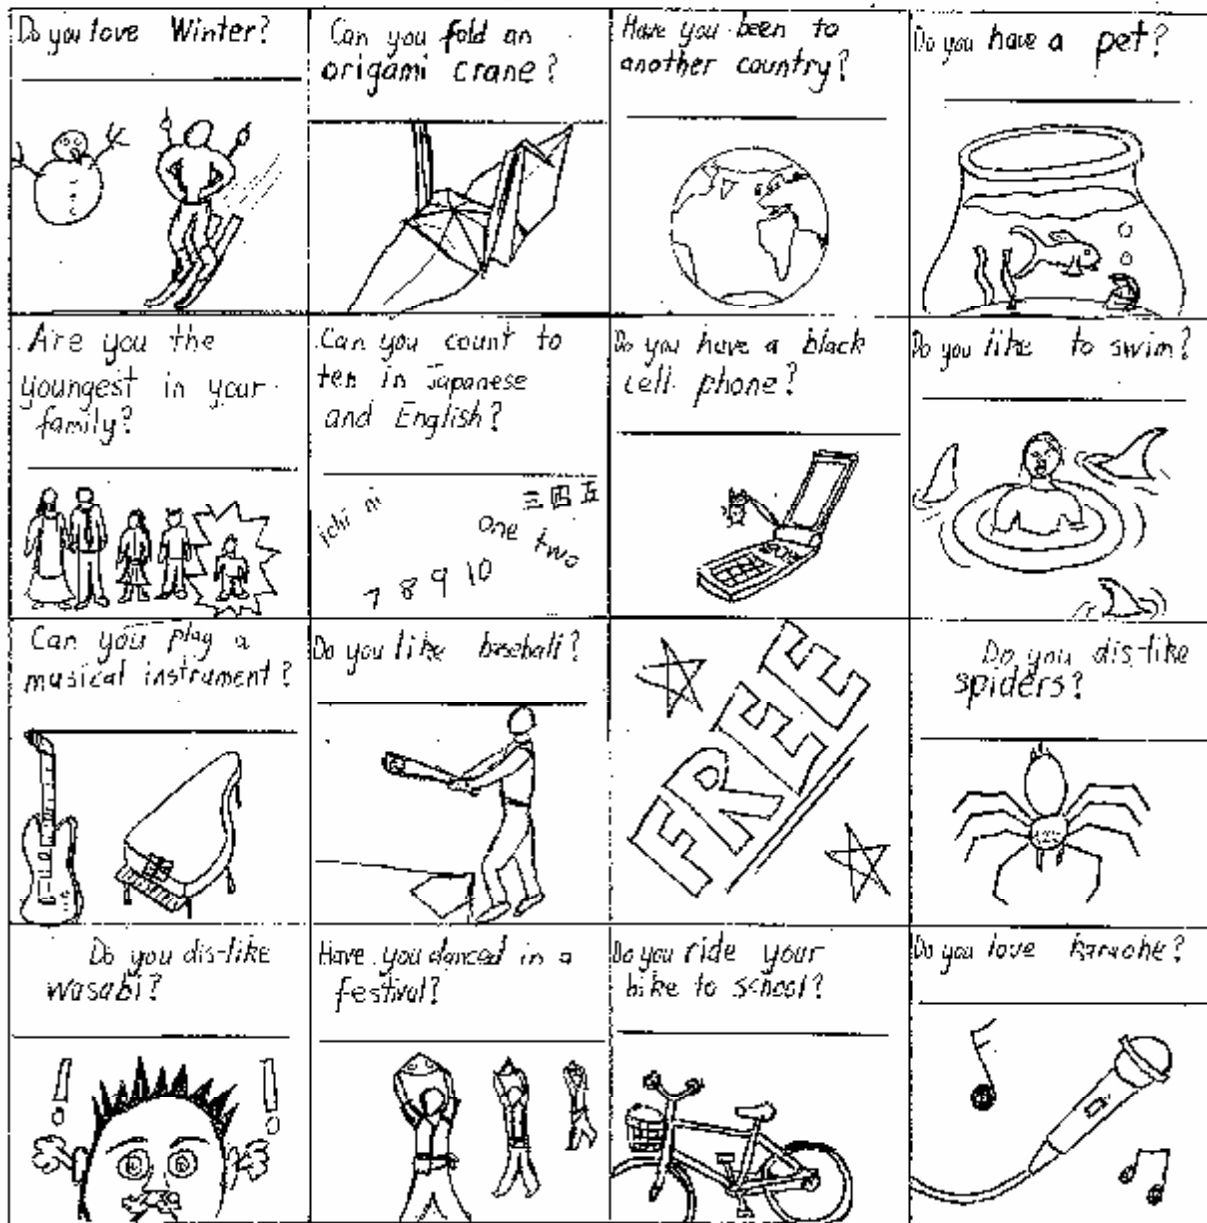 Do you love Winter?
Can you fold an
origami crane?
Have you been to
another country?
Do you have a pet?
Are you the
youngest in your
family?
Can you count to
ten in Japanese
and English?
ichi ni
三四五
one two
7 8 9 10
Do you have a black
cell phone?
Do you like to swim?
Can you play a
musical instrument?
Do you like baseball?
FREE
Do you dis-like
spiders?
Do you dis-like
wasabi?
Have you danced in a
festival?
Do you ride your
bike to school?
Do you love karaoke?